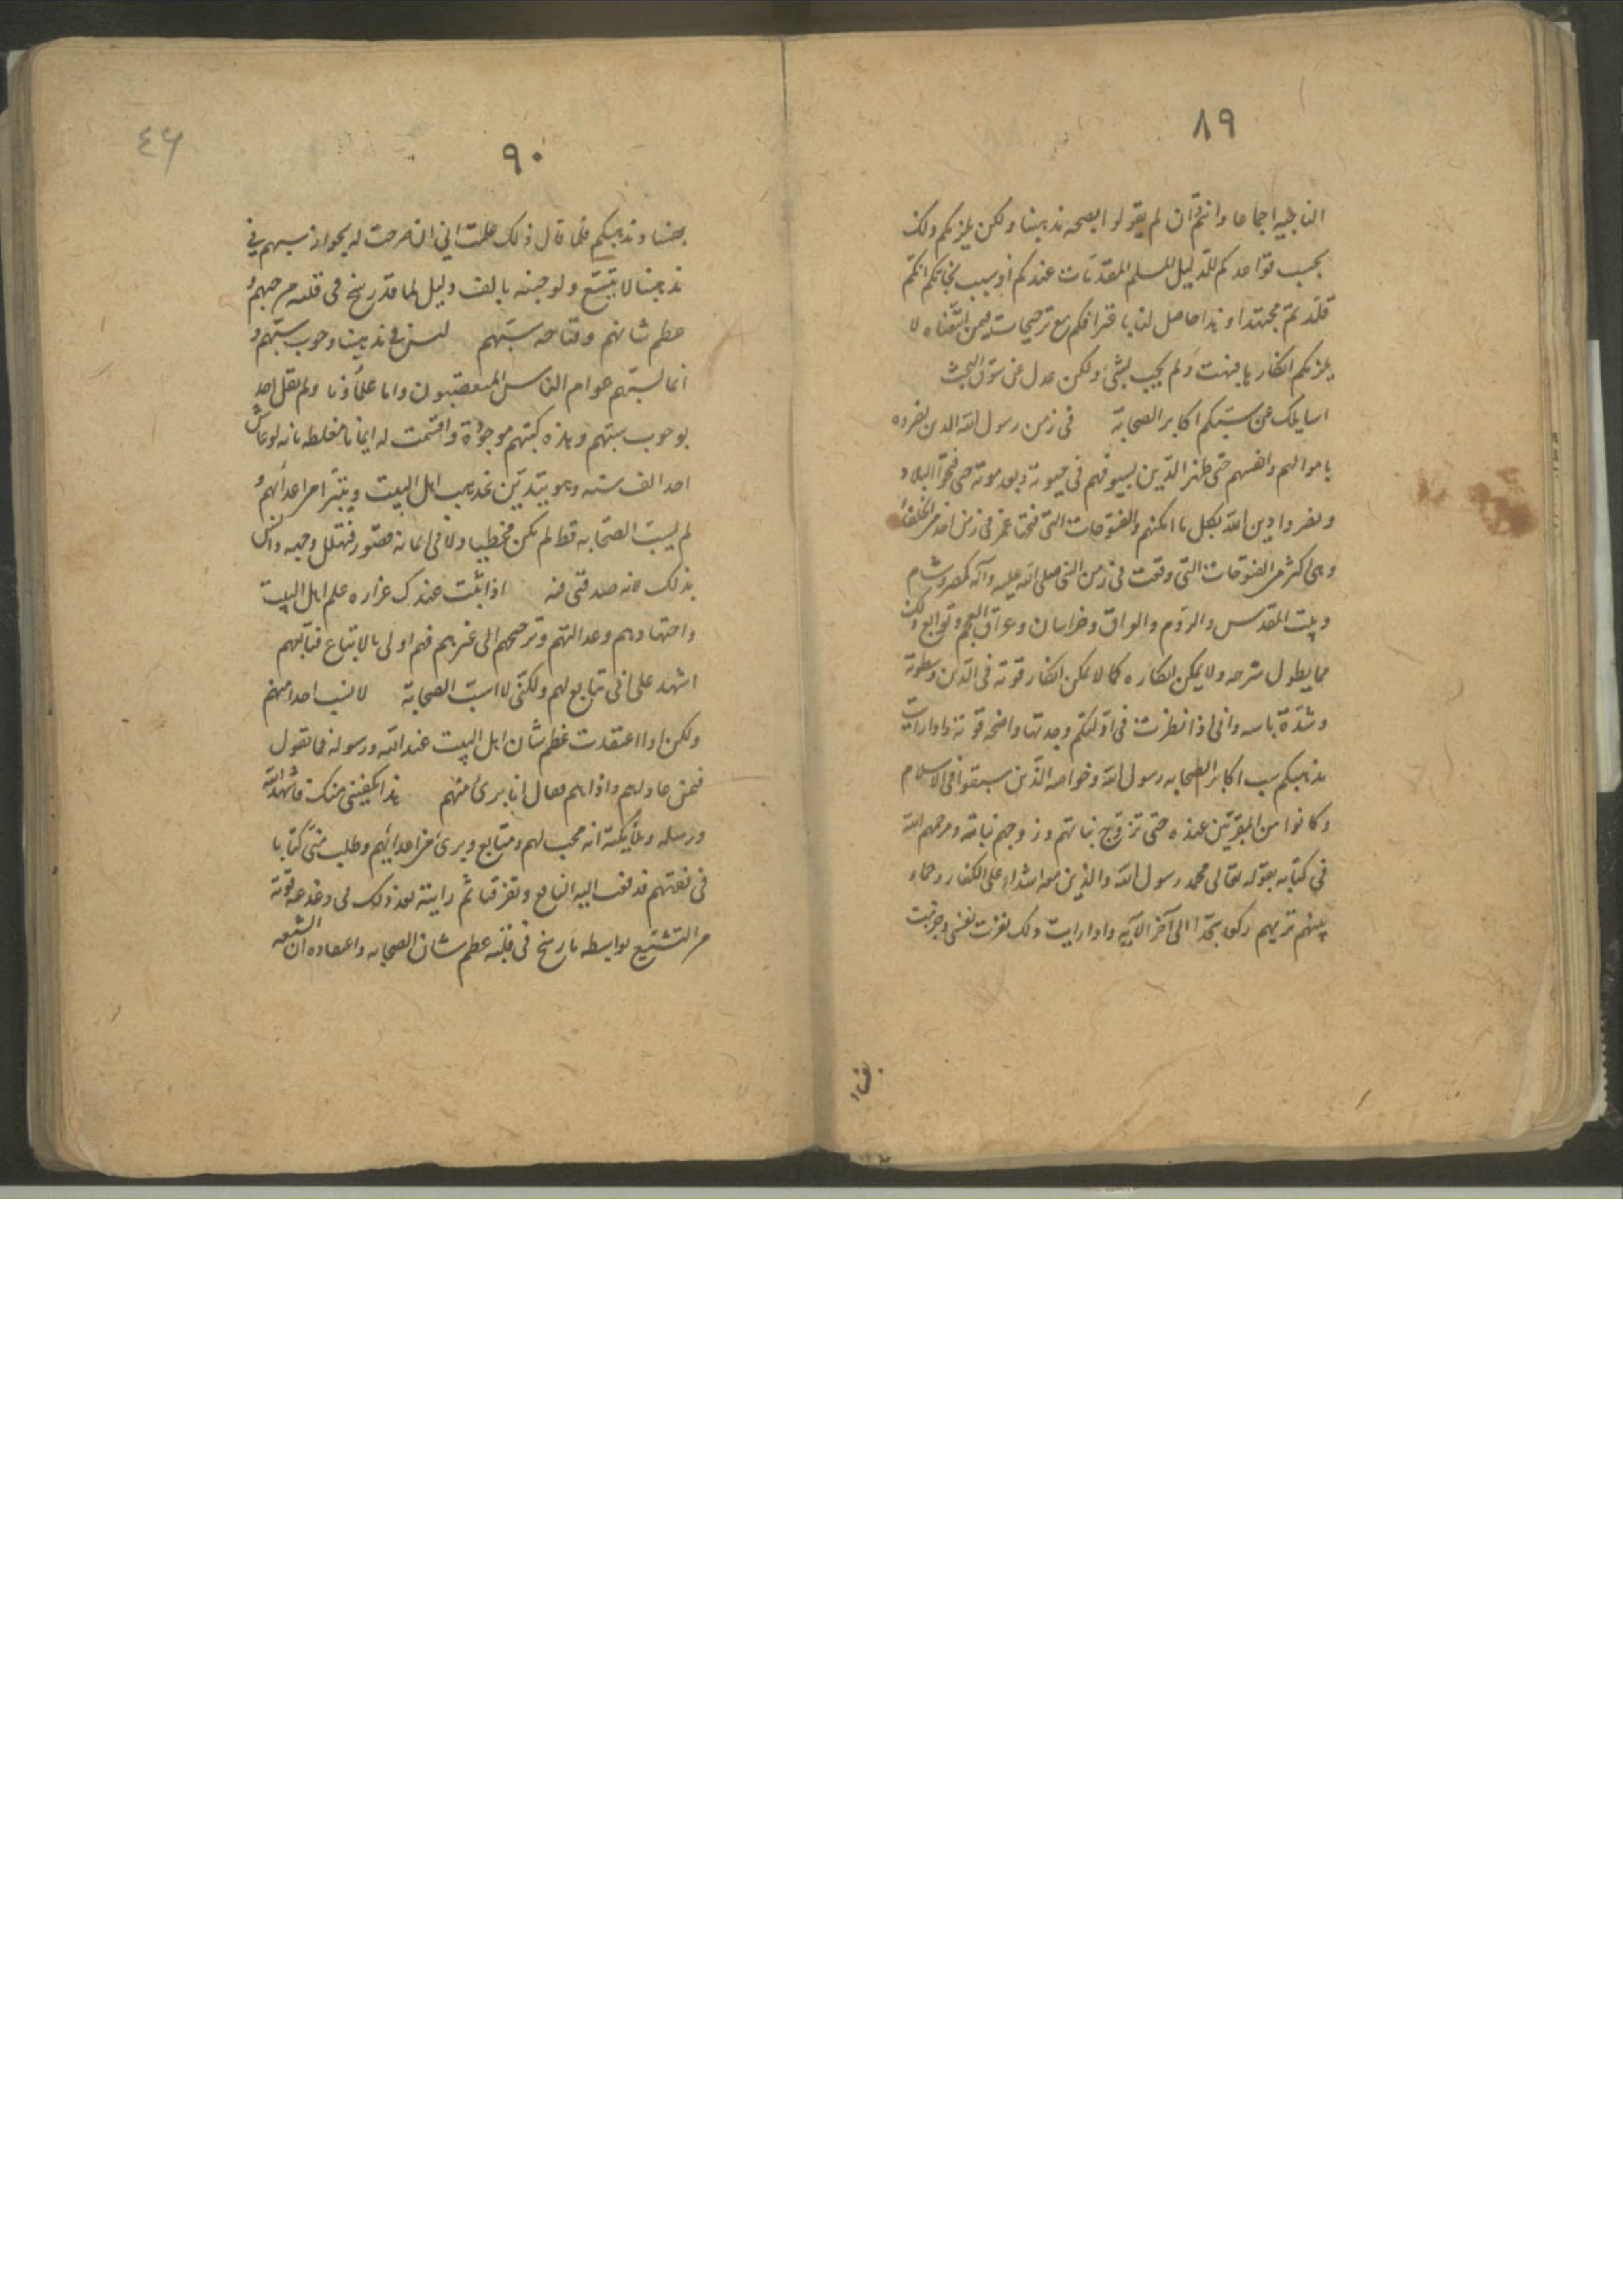 ٨٩
الناجية اجماعا وانتم وان لم يقولوا بصحه مذهبنا ولكن يلزمكم ذلك
بحسب قواعدكم للدليل المسلم المقدمات عندكم اذ سبب نجاتكم انكم
قلدتم مجتهدا وهذا حاصل لنا باعترافكم مع ترجيحات فيمن اتبعناه لا
يلزمكم انكار ها فبهت ولم يجب بشئ ولكن عدل عن سوق البحث
اسايلك عن سبكم اكابر الصحابة في زمن رسول الله الذين نصروه
باموالهم وانفسهم حتى ظهر الدين بسيوفهم في حيوته وبعد موته حتى فتحوا البلاد
ونصروا دين الله بكل ما امكنهم والفتوحات التي فتحها عمر في زمن احد من الخلفاء
وهي اكثر من الفتوحات التي وقعت في زمن النبي صلى الله عليه وآله كمصر وشام
وبيت المقدس والروم والعراق وخراسان وعراق العجم وتوابع ذلك
مما يطول شرحه ولا يمكن انكاره كما لا يمكن انكار قوته في الدين وسطوته
وشدة باسه واني اذا نظرت في ادلتكم وجدتها واضحه قوية واذا رايت
مذهبكم سب اكابر الصحابه رسول الله وخواصه الذين سبقوا في الاسلام
وكانوا من المقربين عنده حتى تزوج بناتهم وزوجهم بناته ومدحهم الله
في كتابه بقوله تعالى محمد رسول الله والذين معه اشداء على الكفار رحماء
بينهم تريهم ركعا سجدا الى آخر الآيه واذا رايت ذلك نفرت نفسي وجزمت
بفساد
٩٠
٤٦
بفساد مذهبكم فلما قال ذلك علمت اني ان صرحت له بجواز سبهم في
مذهبنا لا يتشيع ولو جئته بالف دليل لما قد رسخ في قلبه من حبهم و
عظم شانهم وقباحه سبهم ليس في مذهبنا وجوب سبهم و
انما يسبهم عوام الناس المتعصبون واما علماؤنا ولم يقل احد
بوجوب سبهم وهذه كتبهم موجودة واقسمت له ايمانا مغلظه بانه لو عاش
احد الف سنه وهو يتدين بمذهب اهل البيت ويتبرا من اعدائهم و
لم يسب الصحابه قط لم يكن مخطيا ولا في ايمانه قصور فتهلل وجهه وانس
بذلك لانه صدقني فيه اذا ثبت عندك غزاره علم اهل البيت
واجتهادهم وعدالتهم وترجيحهم الى غيرهم فهم اولى بالاتباع فتابعهم
اشهد على اني متابع لهم ولكني لا اسب الصحابة لا تسب احدا منهم
ولكن اذا اعتقدت عظم شان اهل البيت عند الله ورسوله فما تقول
فيمن عاداهم واذاهم فقال انا برئ منهم هذا يكفيني منك فاشهد الله
ورسله وملائكته انه محب لهم ومتابع وبرئ من اعدائهم وطلب مني كتابا
في فقههم فدفعت اليه النافع وتفرقنا ثم رايته بعد ذلك في
من التشيع بواسطه ما رسخ في قلبه عظم شان الصحابه واعتقاده ان الشيعه